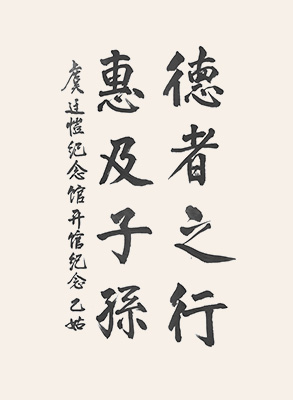 德者之行
惠及子孫
虞廷愷纪念馆开馆纪念 乙姑